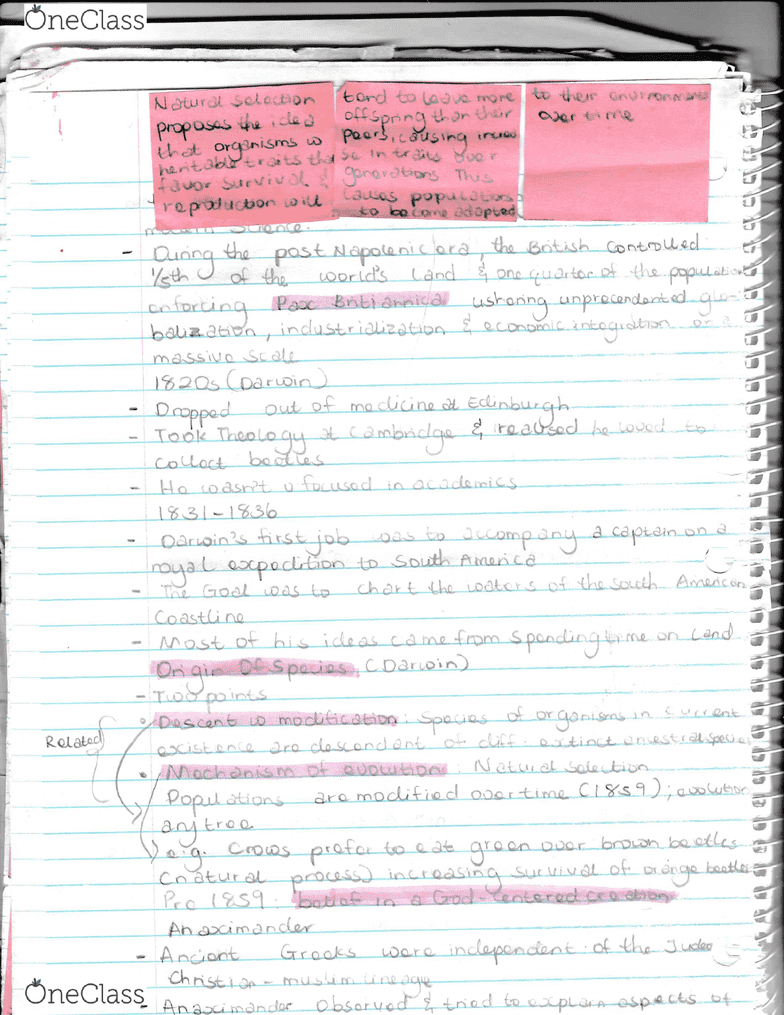 OneClass
Natural selection
proposes the idea
that organisms w
heritable traits that
favor survival &
reproduction will
tend to leave more
offspring than their
peers, causing
se in traits over
generations This
causes populations
to become adapted
to their environments
over time
modern science.
- During the post Napolenic era, the British controlled
1/5th of the world's land & one quarter of the population
enforcing Pax Britiannica ushering unprecendented glo-
balization, industrialization & economic integration on a
massive scale
1820s (Darwin)
- Dropped out of medicine at Edinburgh
- Took Theology at Cambridge & realised he loved to
collect beetles
- He wasn't v focused in academics
1831-1836
- Darwin's first job was to accompany a captain on a
royal expedition to South America
- The Goal was to chart the waters of the south American
Coastline
- Most of his ideas came from spending time on land
Origin Of Species (Darwin)
- Two points
• Descent w modification: Species of organisms in current
existence are descendant of diff extinct ancestral species
Related
• Mechanism of evolution: Natural selection
Populations are modified over time (1859); evolution
ary tree
e.g. Crows prefer to eat green over brown beetles
(natural process) increasing survival of orange beetles
Pre 1859: belief in a God-centered creation
Anaximander
- Ancient Greeks were independent of the Judeo
Christian-muslim lineage
- Anaximander Observed & tried to explain aspects of
OneClass